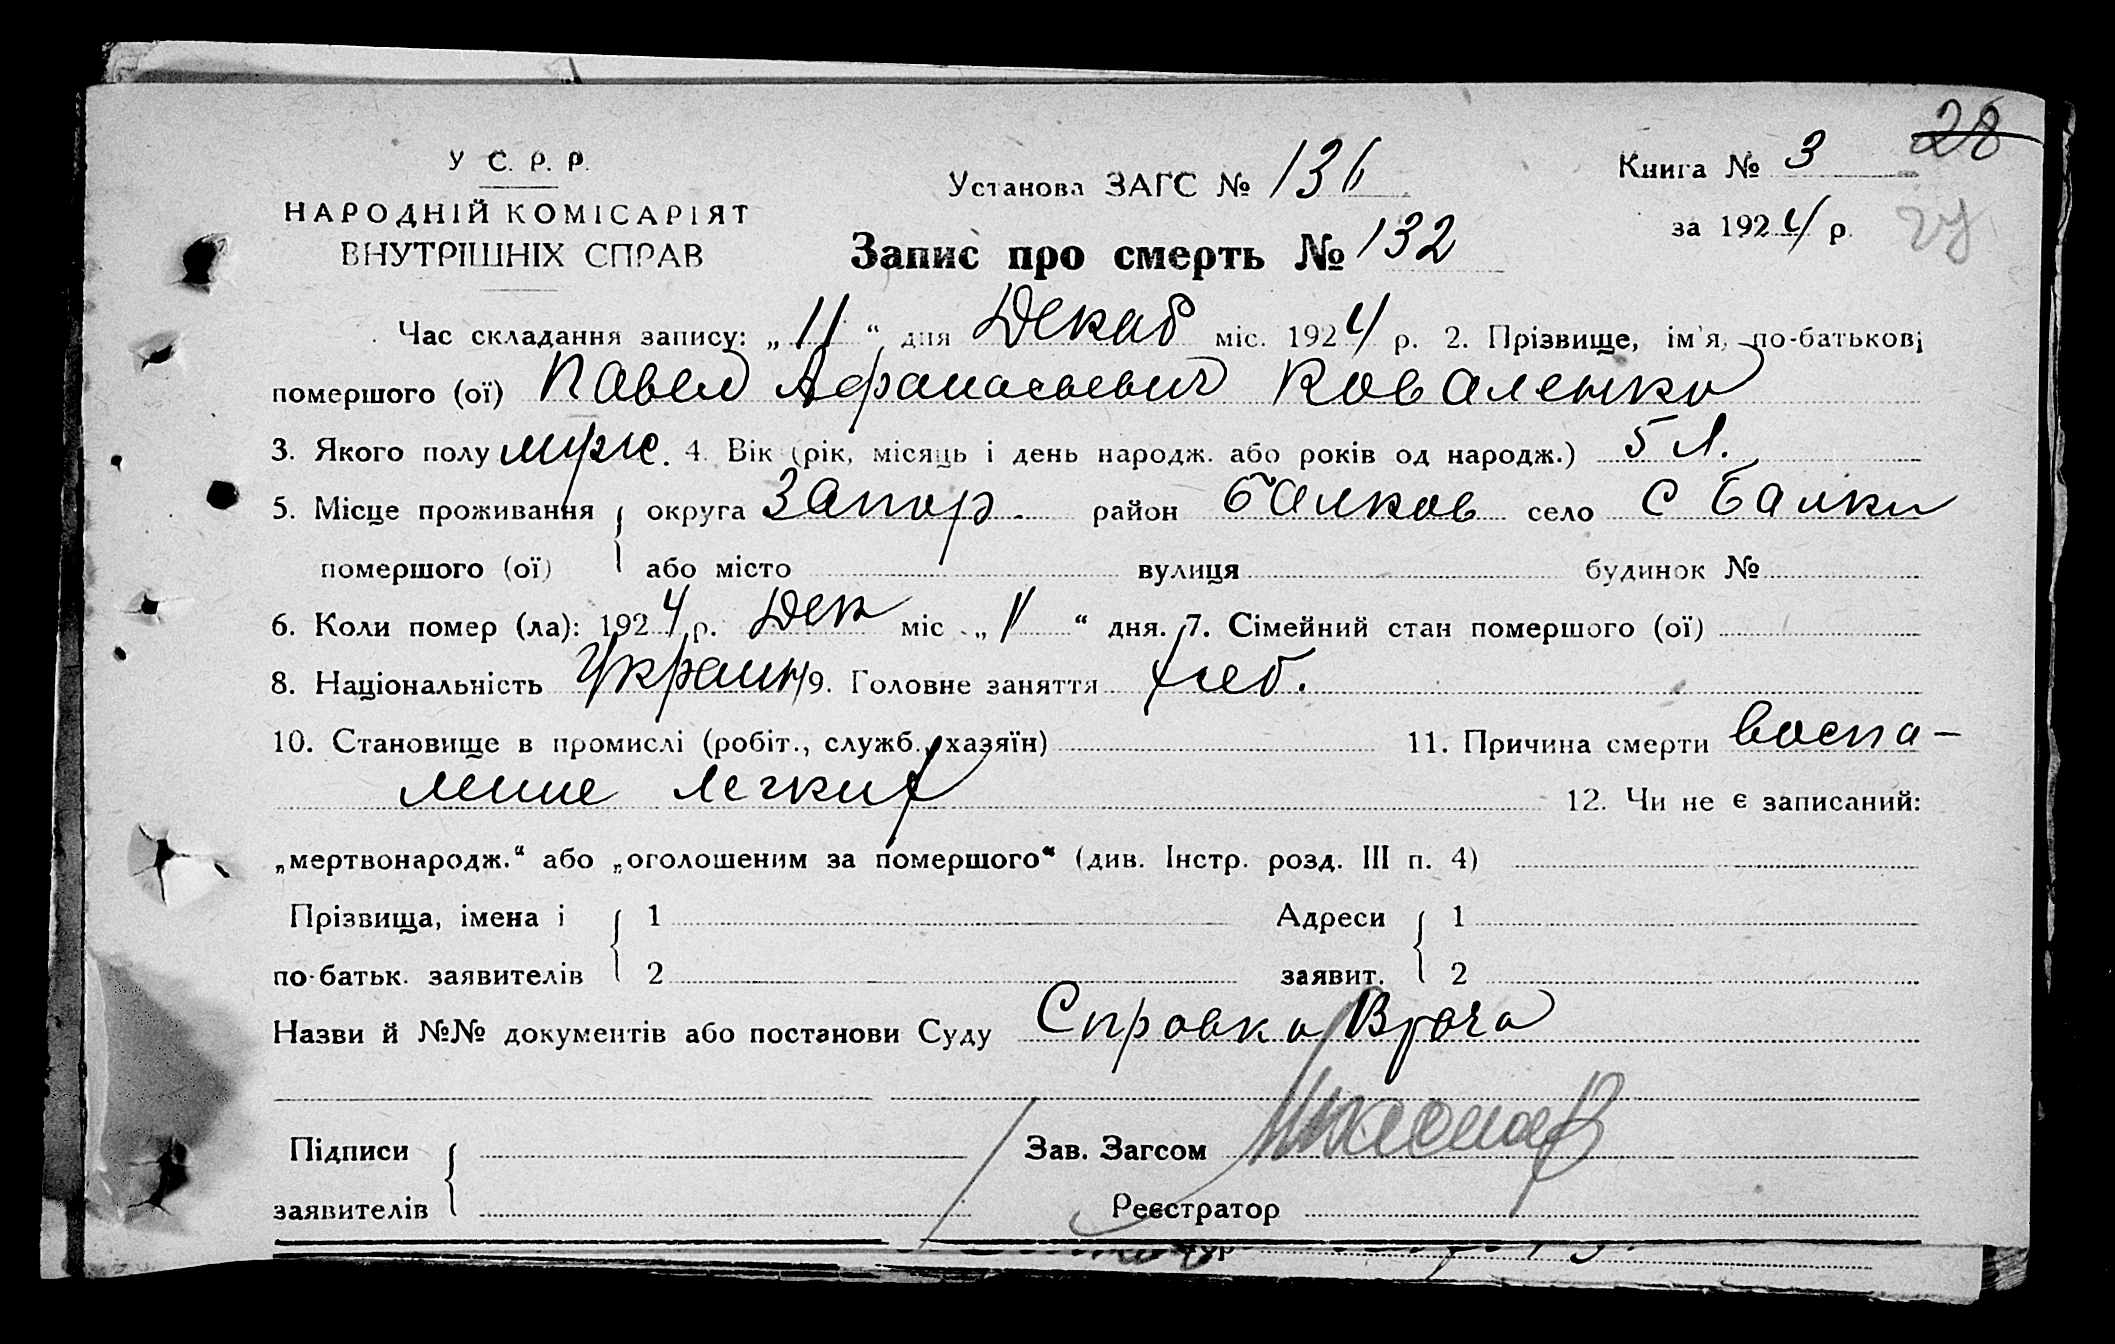 28
У С. Р. Р.
НАРОДНІЙ КОМІСАРІЯТ
ВНУТРІШНІХ СПРАВ
Установа ЗАГС № 136
Книга № 3
за 1924 р.
Запис про смерть № 132
Час складання запису: „11“ дня Декаб міс. 1924 р. 2. Прізвище, ім'я, по-батькові
помершого (ої) Павел Афанасьевич Коваленко
3. Якого полу муж. 4. Вік (рік, місяць і день народж. або років од народж.) 5 л.
5. Місце проживання округа Запор. район Балков село с Балки
помершого (ої) або місто вулиця будинок №
6. Коли помер (ла): 1924 р. Дек міс „11“ дня. 7. Сімейний стан помершого (ої)
8. Національність Украин 9. Головне заняття хлеб.
10. Становище в промислі (робіт., служб., хазяїн) 11. Причина смерти воспа-
ление легких 12. Чи не є записаний:
„мертвонародж.“ або „оголошеним за помершого“ (див. Інстр. розд. III п. 4)
Прізвища, імена і 1 Адреси 1
по-батьк. заявителів 2 заявит. 2
Назви й №№ документів або постанови Суду Справка Врача
Підписи Зав. Загсом
заявителів Реєстратор